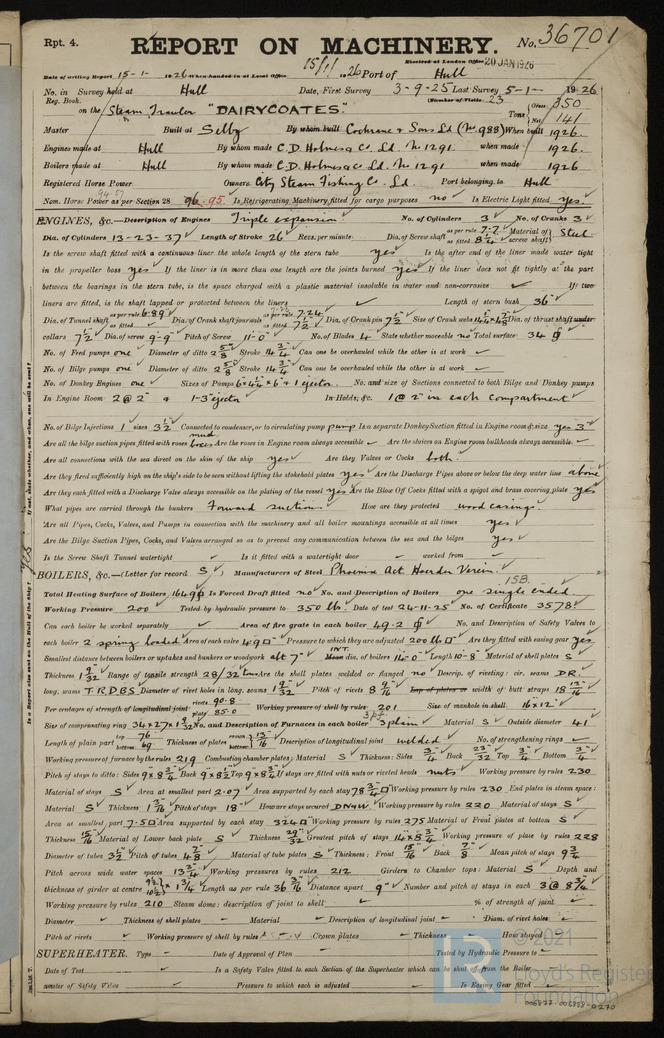 Rpt. 4. REPORT ON MACHINERY. No. 36701
Received at London Office 20 JAN 1926
Date of writing Report 15-1- 1926 When handed in at Local Office 15/1/ 1926 Port of Hull
No. in Survey held at Hull Date, First Survey 3-9-25 Last Survey 5-1- 1926
Reg. Book. (Number of Visits 23
on the Steam Trawler "DAIRYCOATES" Tons Gross 350 Net 141
Master Built at Selby By whom built Cochrane & Sons Ld (No 988) When built 1926
Engines made at Hull By whom made C.D. Holmes & Co. Ld. No 1291 when made 1926
Boilers made at Hull By whom made C.D. Holmes & Co. Ld. No 1291 when made 1926
Registered Horse Power Owners City Steam Fishing Co. Ld. Port belonging to Hull
Nom. Horse Power as per Section 28 96 95. Is Refrigerating Machinery fitted for cargo purposes no Is Electric Light fitted yes
ENGINES, &c.—Description of Engines Triple expansion No. of Cylinders 3 No. of Cranks 3
Dia. of Cylinders 13-23-37 Length of Stroke 26 Revs. per minute Dia. of Screw shaft as per rule 7.7 as fitted 8 1/4 Material of screw shaft Steel
Is the screw shaft fitted with a continuous liner the whole length of the stern tube yes Is the after end of the liner made water tight
in the propeller boss yes If the liner is in more than one length are the joints burned yes If the liner does not fit tightly at the part
between the bearings in the stern tube, is the space charged with a plastic material insoluble in water and non-corrosive If two
liners are fitted, is the shaft lapped or protected between the liners Length of stern bush 36"
Dia. of Tunnel shaft as per rule 6.89 as fitted Dia. of Crank shaft journals as per rule 7.24 as fitted 7 1/2 Dia. of Crank pin 7 1/2 Size of Crank webs Dia. of thrust shaft under
collars 7 1/2 Dia. of screw 9-9 Pitch of Screw 11-0 No. of Blades 4 State whether moveable no Total surface 34
No. of Feed pumps one Diameter of ditto 2 5/8 Stroke 14 3/4 Can one be overhauled while the other is at work
No. of Bilge pumps one Diameter of ditto 2 5/8 Stroke 14 3/4 Can one be overhauled while the other is at work
No. of Donkey Engines one Sizes of Pumps 6×4 1/4×6 & 1 ejector. No. and size of Suctions connected to both Bilge and Donkey pumps
In Engine Room 2 @ 2" & 1-3" ejector In Holds, &c. 1 @ 2" in each compartment
No. of Bilge Injections 1 sizes 3 1/2 Connected to condenser, or to circulating pump pump Is a separate Donkey Suction fitted in Engine room & size yes 3
Are all the bilge suction pipes fitted with roses mud boxes Are the roses in Engine room always accessible Are the sluices on Engine room bulkheads always accessible
Are all connections with the sea direct on the skin of the ship yes Are they Valves or Cocks both.
Are they fixed sufficiently high on the ship's side to be seen without lifting the stokehold plates yes Are the Discharge Pipes above or below the deep water line above
Are they each fitted with a Discharge Valve always accessible on the plating of the vessel yes Are the Blow Off Cocks fitted with a spigot and brass covering plate yes
What pipes are carried through the bunkers Forward suction How are they protected wood casings.
Are all Pipes, Cocks, Valves, and Pumps in connection with the machinery and all boiler mountings accessible at all times yes
Are the Bilge Suction Pipes, Cocks, and Valves arranged so as to prevent any communication between the sea and the bilges yes
Is the Screw Shaft Tunnel watertight Is it fitted with a watertight door worked from
BOILERS, &c.—(Letter for record S) Manufacturers of Steel Phoenix Act Hoerder Verein
Total Heating Surface of Boilers 1649 Is Forced Draft fitted no No. and Description of Boilers 1SB. one single ended
Working Pressure 200 Tested by hydraulic pressure to 350 lb. Date of test 24-11-25 No. of Certificate 3578
Can each boiler be worked separately Area of fire grate in each boiler 49.2 No. and Description of Safety Valves to
each boiler 2 spring loaded Area of each valve 4.9 Pressure to which they are adjusted 200 lb Are they fitted with easing gear yes
Smallest distance between boilers or uptakes and bunkers or woodwork abt 7" INT. Mean dia. of boilers 14-0 Length 10-8 Material of shell plates S
Thickness 1 9/32 Range of tensile strength 28/32 tons Are the shell plates welded or flanged no Descrip. of riveting: cir. seams D.R.
long. seams T.R.D.B.S Diameter of rivet holes in long. seams 1 9/32 Pitch of rivets 8 9/16 Lap of plates or width of butt straps 18
Per centages of strength of longitudinal joint rivets 90.8 plate 85.0 Working pressure of shell by rules 201 Size of manhole in shell 16×12
Size of compensating ring 34×27×1 9/32 No. and Description of Furnaces in each boiler 3 plain Material S Outside diameter 41
Length of plain part top 76 bottom 69 Thickness of plates crown bottom 13/16 Description of longitudinal joint welded No. of strengthening rings
Working pressure of furnace by the rules 219 Combustion chamber plates: Material S Thickness: Sides 3/4 Back 23/32 Top 3/4 Bottom 3/4
Pitch of stays to ditto: Sides 9×8 3/4 Back 9×8 1/2 Top 9×8 3/4 If stays are fitted with nuts or riveted heads nuts Working pressure by rules 230
Material of stays S Area at smallest part 2.07 Area supported by each stay 78 3/4 Working pressure by rules 230 End plates in steam space:
Material S Thickness 1 3/16 Pitch of stays 18 How are stays secured DN&W. Working pressure by rules 220 Material of stays S
Area at smallest part 7.5 Area supported by each stay 324 Working pressure by rules 275 Material of Front plates at bottom S
Thickness 15/16 Material of Lower back plate S Thickness 29/32 Greatest pitch of stays 14×8 3/4 Working pressure of plate by rules 228
Diameter of tubes 3 1/2 Pitch of tubes 4 7/8 Material of tube plates S Thickness: Front 15/16 Back 7/8 Mean pitch of stays 9 3/4
Pitch across wide water spaces 13 3/4 Working pressures by rules 212 Girders to Chamber tops: Material S Depth and
thickness of girder at centre Length as per rule 36 Distance apart 9" Number and pitch of stays in each 3 @ 8 3/4
Working pressure by rules 210 Steam dome: description of joint to shell % of strength of joint
Diameter Thickness of shell plates Material Description of longitudinal joint Diam. of rivet holes
Pitch of rivets Working pressure of shell by rules Crown plates Thickness How stayed
SUPERHEATER. Type Date of Approval of Plan Tested by Hydraulic Pressure to
Date of Test Is a Safety Valve fitted to each Section of the Superheater which can be shut off from the Boiler
Diameter of Safety Valve Pressure to which each is adjusted Is Easing Gear fitted
© 2021
Lloyd's Register
Foundation
006877-006888-0270